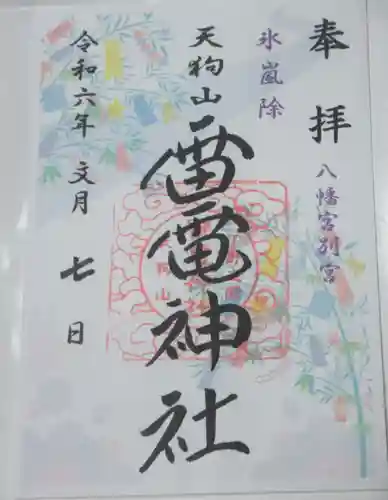 奉拝
八幡宮別宮
氷嵐除
天狗山
雷電神社
令和六年 文月 七日